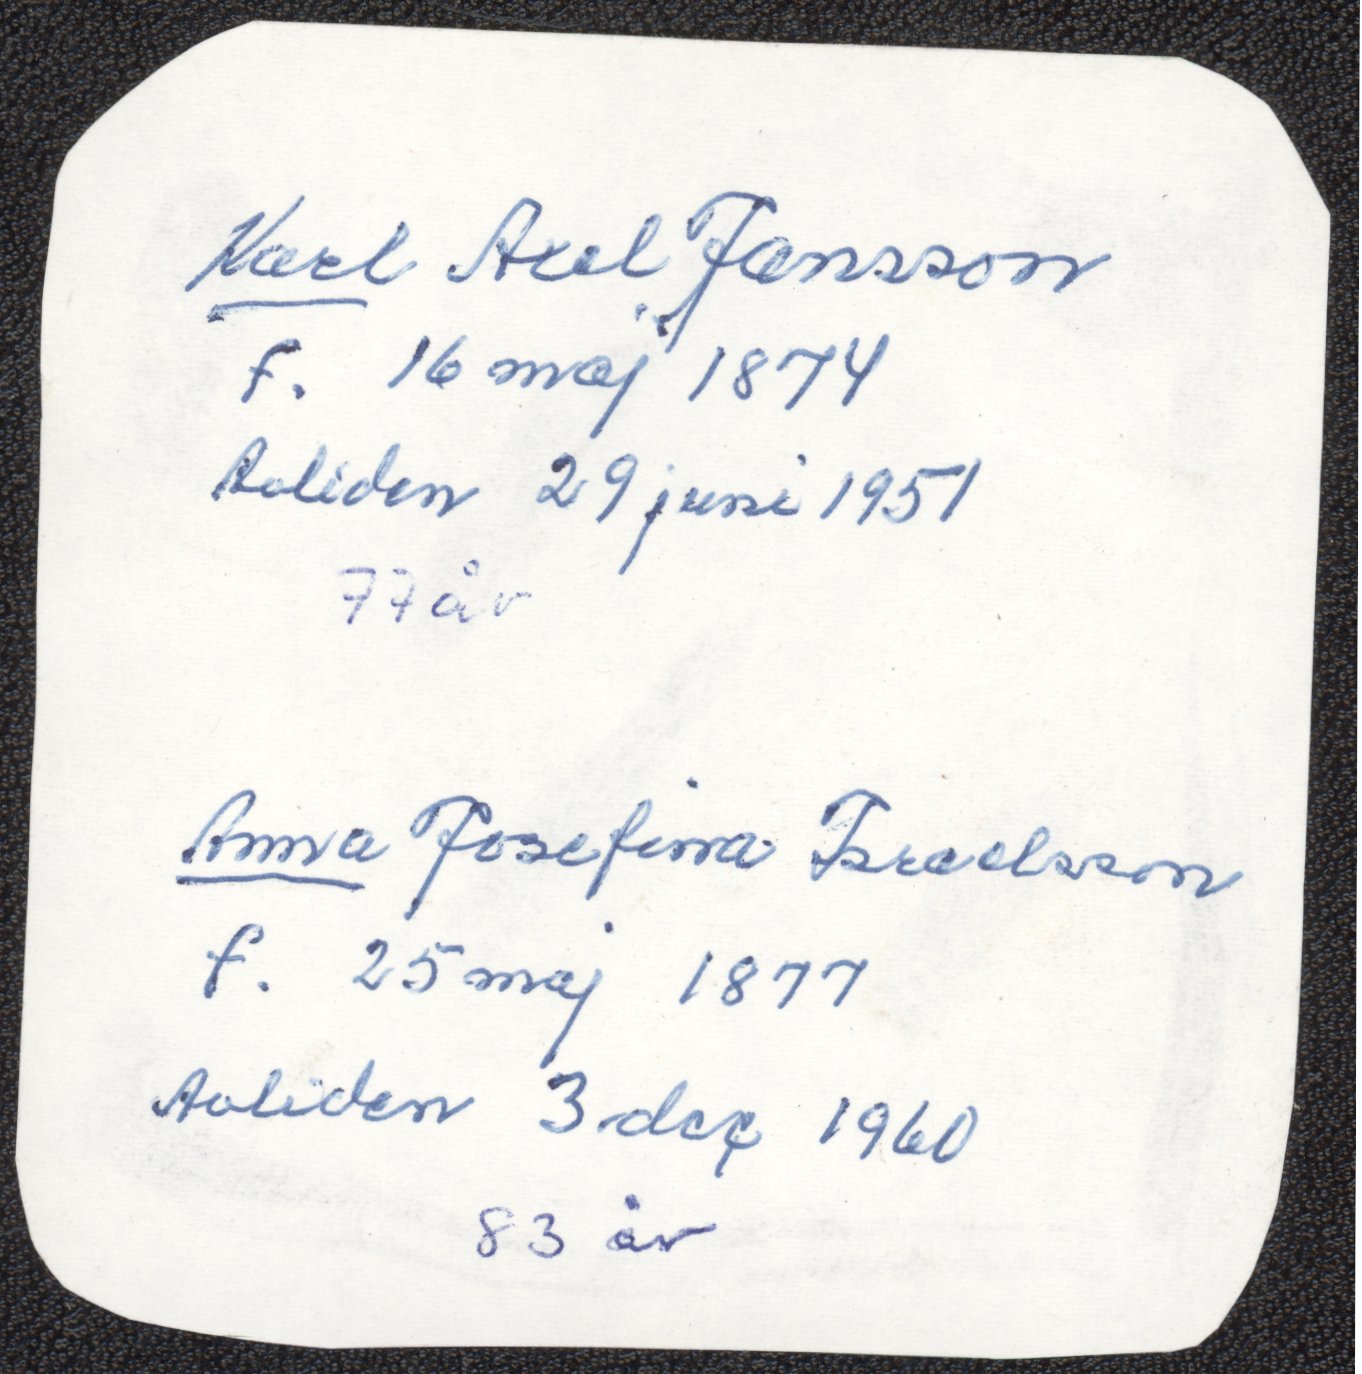 Karl Axel Jansson
f. 16 maj 1874
Avliden 29 juni 1951
77 år
Anna Josefina Israelsson
f. 25 maj 1877
Avliden 3 dec 1960
83 år